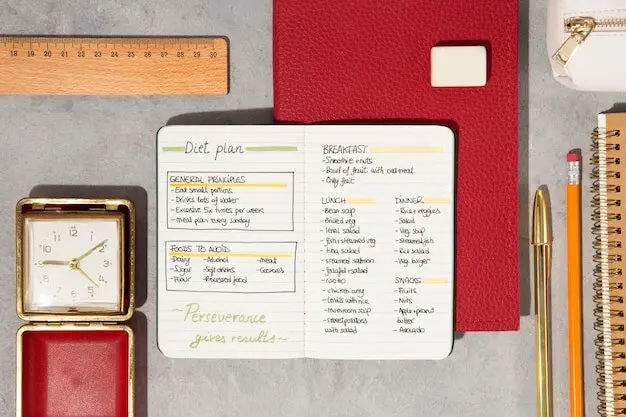 18 19 20 21 22 23 24 25 26 27 28 29 30
Diet plan
GENERAL PRINCIPLES
- Eat small portions
- Drinks lots of water
- Excersise six times per week
- meal plan every sunday
FOODS TO AVOID
- Dairy - Alcohol - meat
- Sugar - Soft drinks - Cookies
- Flour - Processed food
~Perseverance
gives results~
BREAKFAST
- Smoothie + nuts
- Bowl of fruit with oatmeal
- Only fruit
LUNCH
- Bean soup
- Grilled veg
- lentil salad
- fish + steamed veg
- tuna salad
- steamed salmon
- falafel + salad
- chicken curry
- Lentils with rice
- Mushroom soup
- sweet potatoes
with salad
DINNER
- Rice + veggies
- Salad
- Veg soup
- Steamed fish
- Rice salad
- Veg burger
SNACKS
- Fruits
- Nuts
- Apple + peanut
butter
- Avocado
12
1
2
3
4
5
6
7
8
9
10
11